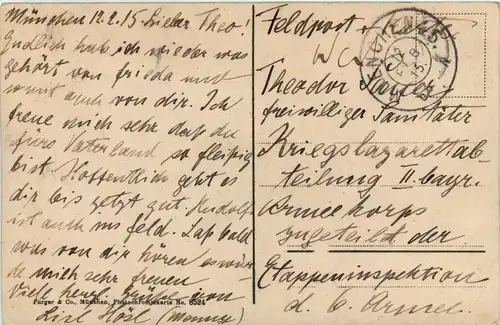 München 12.2.15 Lieber Theo!
Endlich hab ich wieder was
gehört von Frieda und
somit auch von dir. Ich
freue mich sehr daß du
fürs Vaterland so fleißig
bist. Hoffentlich geht es
dir bis jetzt gut. Rudolf
ist auch im Feld. Laß bald
was von dir hören es würde
de mich sehr freuen
Viele herzl. Grüße von
Lisl Hösl
Purger & Co., München, Photochromiekarte No. 6524
Feldpost
MÜNCHEN
Theodor
freiwilliger Sanitäter
Kriegslazarettab-
teilung II bayr.
Armeekorps
zugeteilt der
Etappeninspektion
d. 6. Armee.